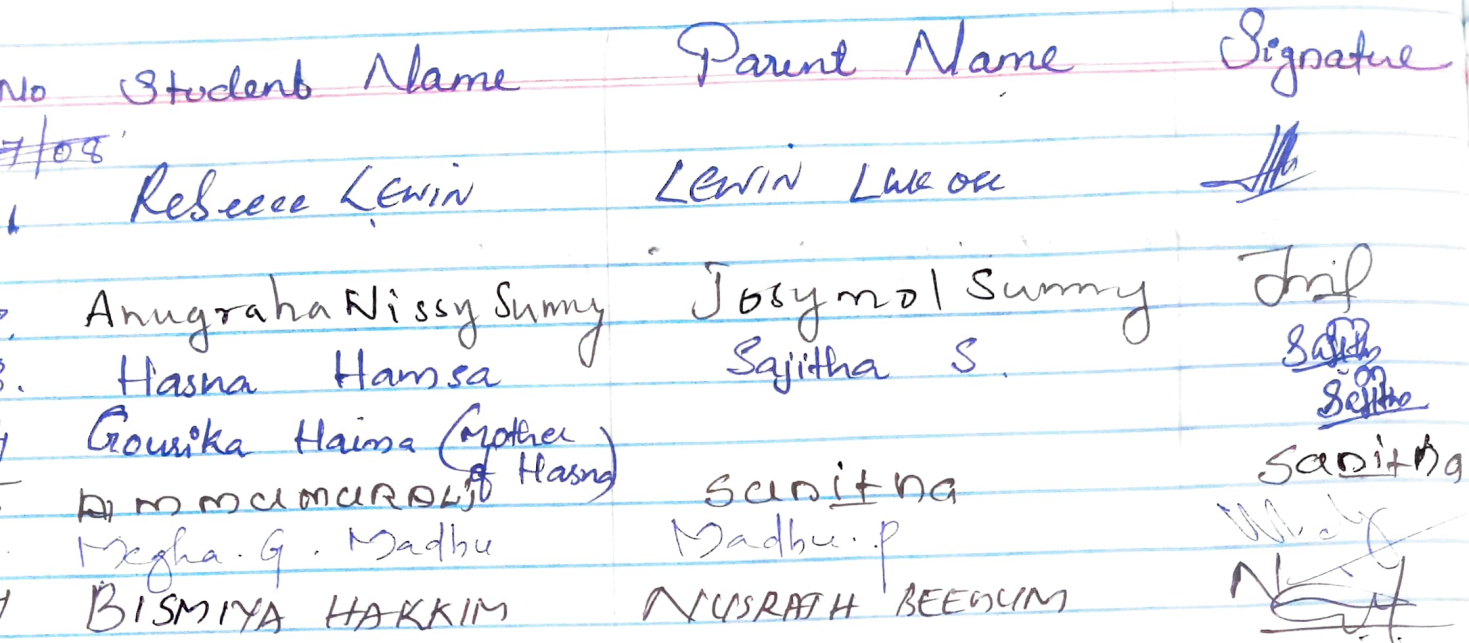 No Student Name Parent Name Signature
7/08
Rebecca LEWIN LEWIN
Anugraha Nissy Sunny Josymol Sunny
3. Hasna Hamsa Sajitha S. Sajitha
Sajitha
Gourika (Mother
of Hasna)
Sanitha
Megha. G. Madhu Madhu. P
BISMIYA HAKKIM NUSRATH BEEGUM